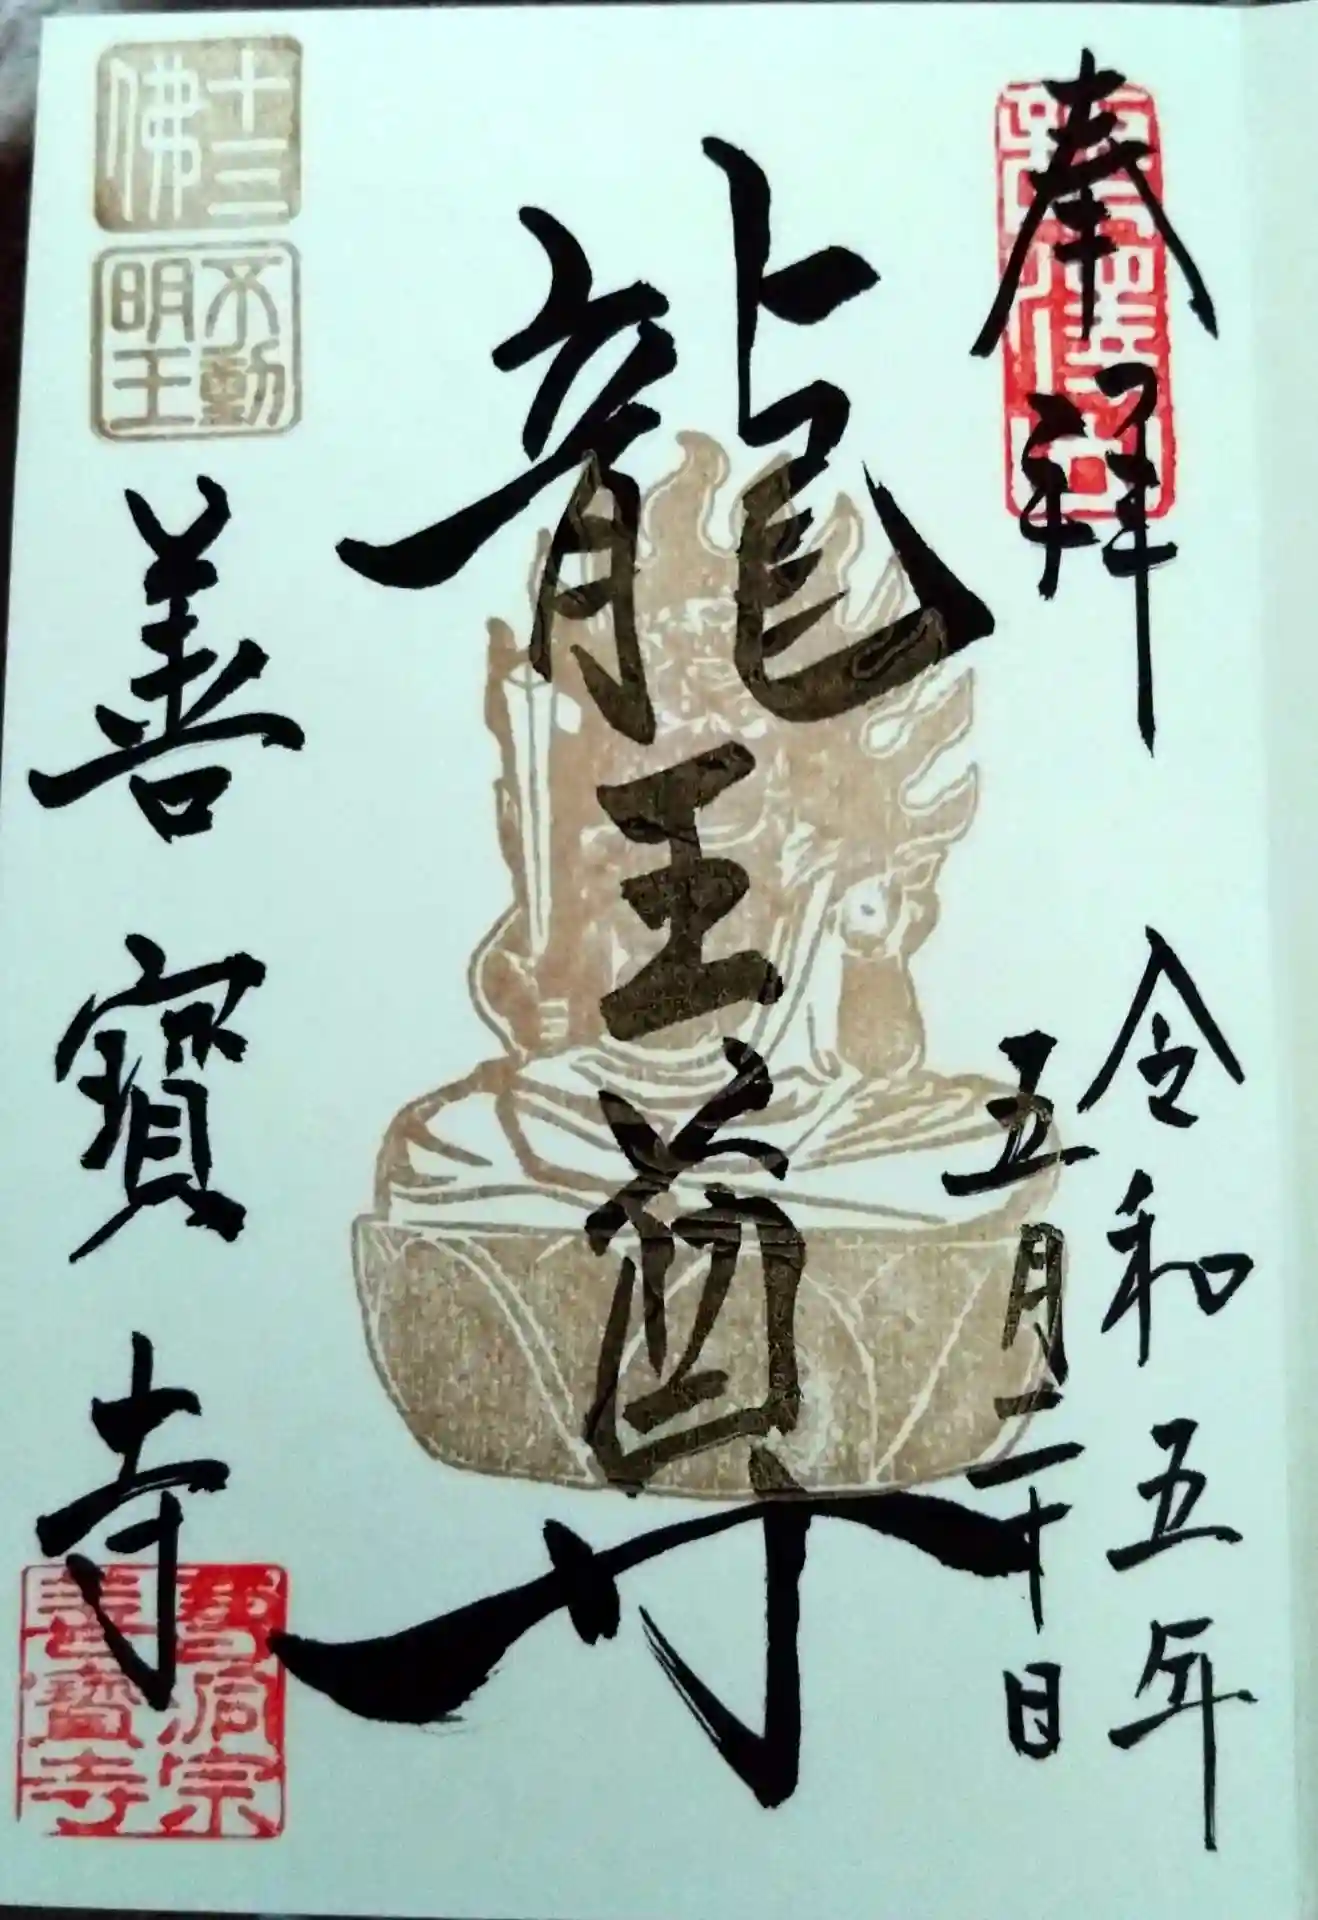 奉拝
令和五年
五月二十日
龍王尊
十三佛
不動明王
善寳寺
曹洞宗善寳寺